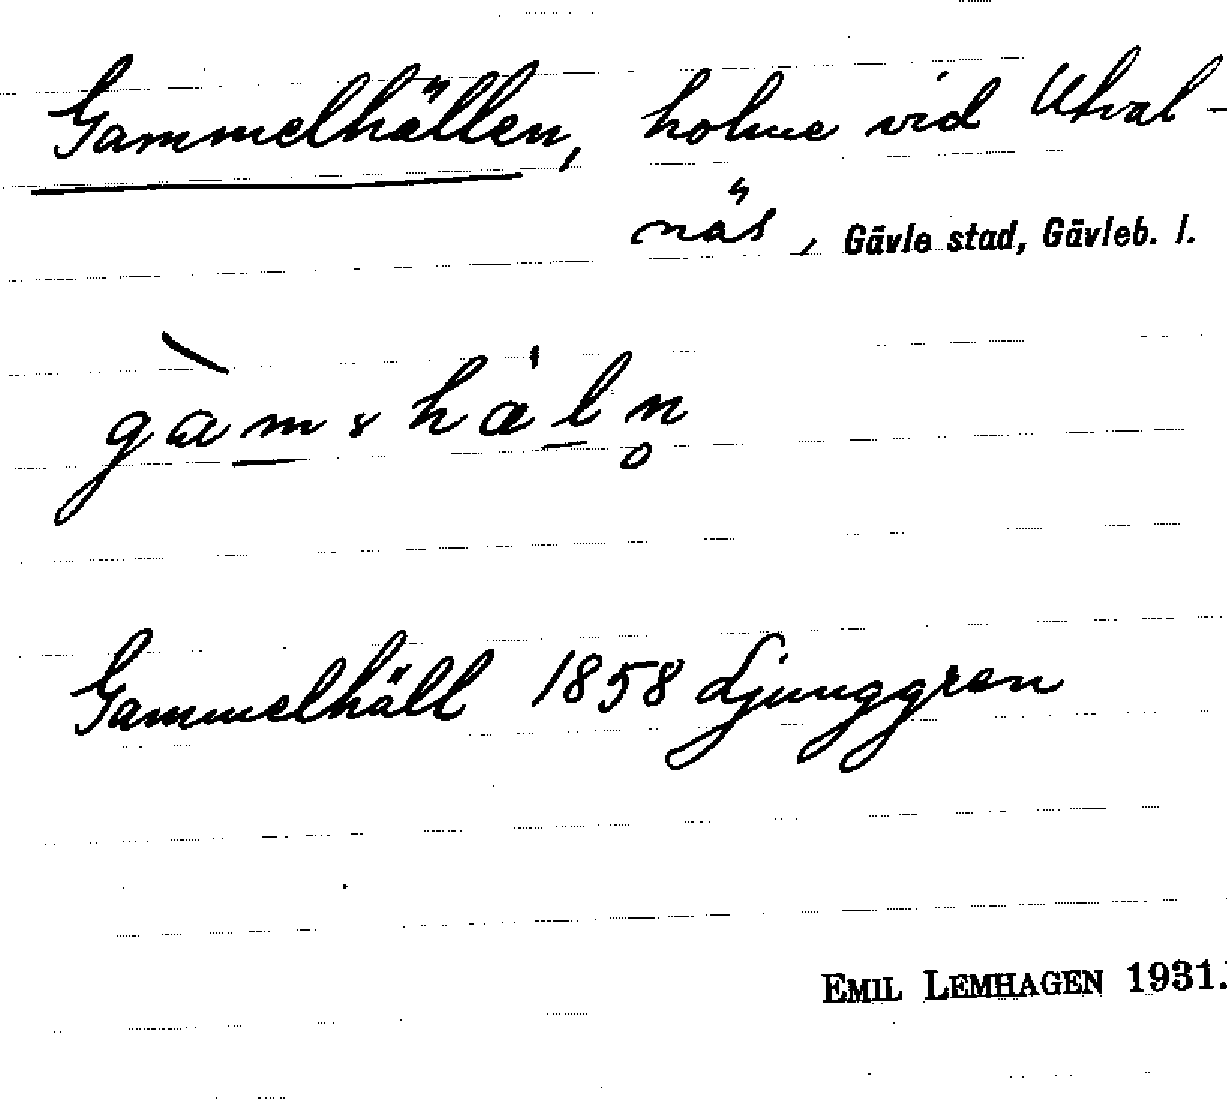 Gammelhällen, holme vid Utval-
näs, Gävle stad, Gävleb. l.
gàmshäln̥
Gammelhäll 1858 Ljunggren
EMIL LEMHAGEN 1931.